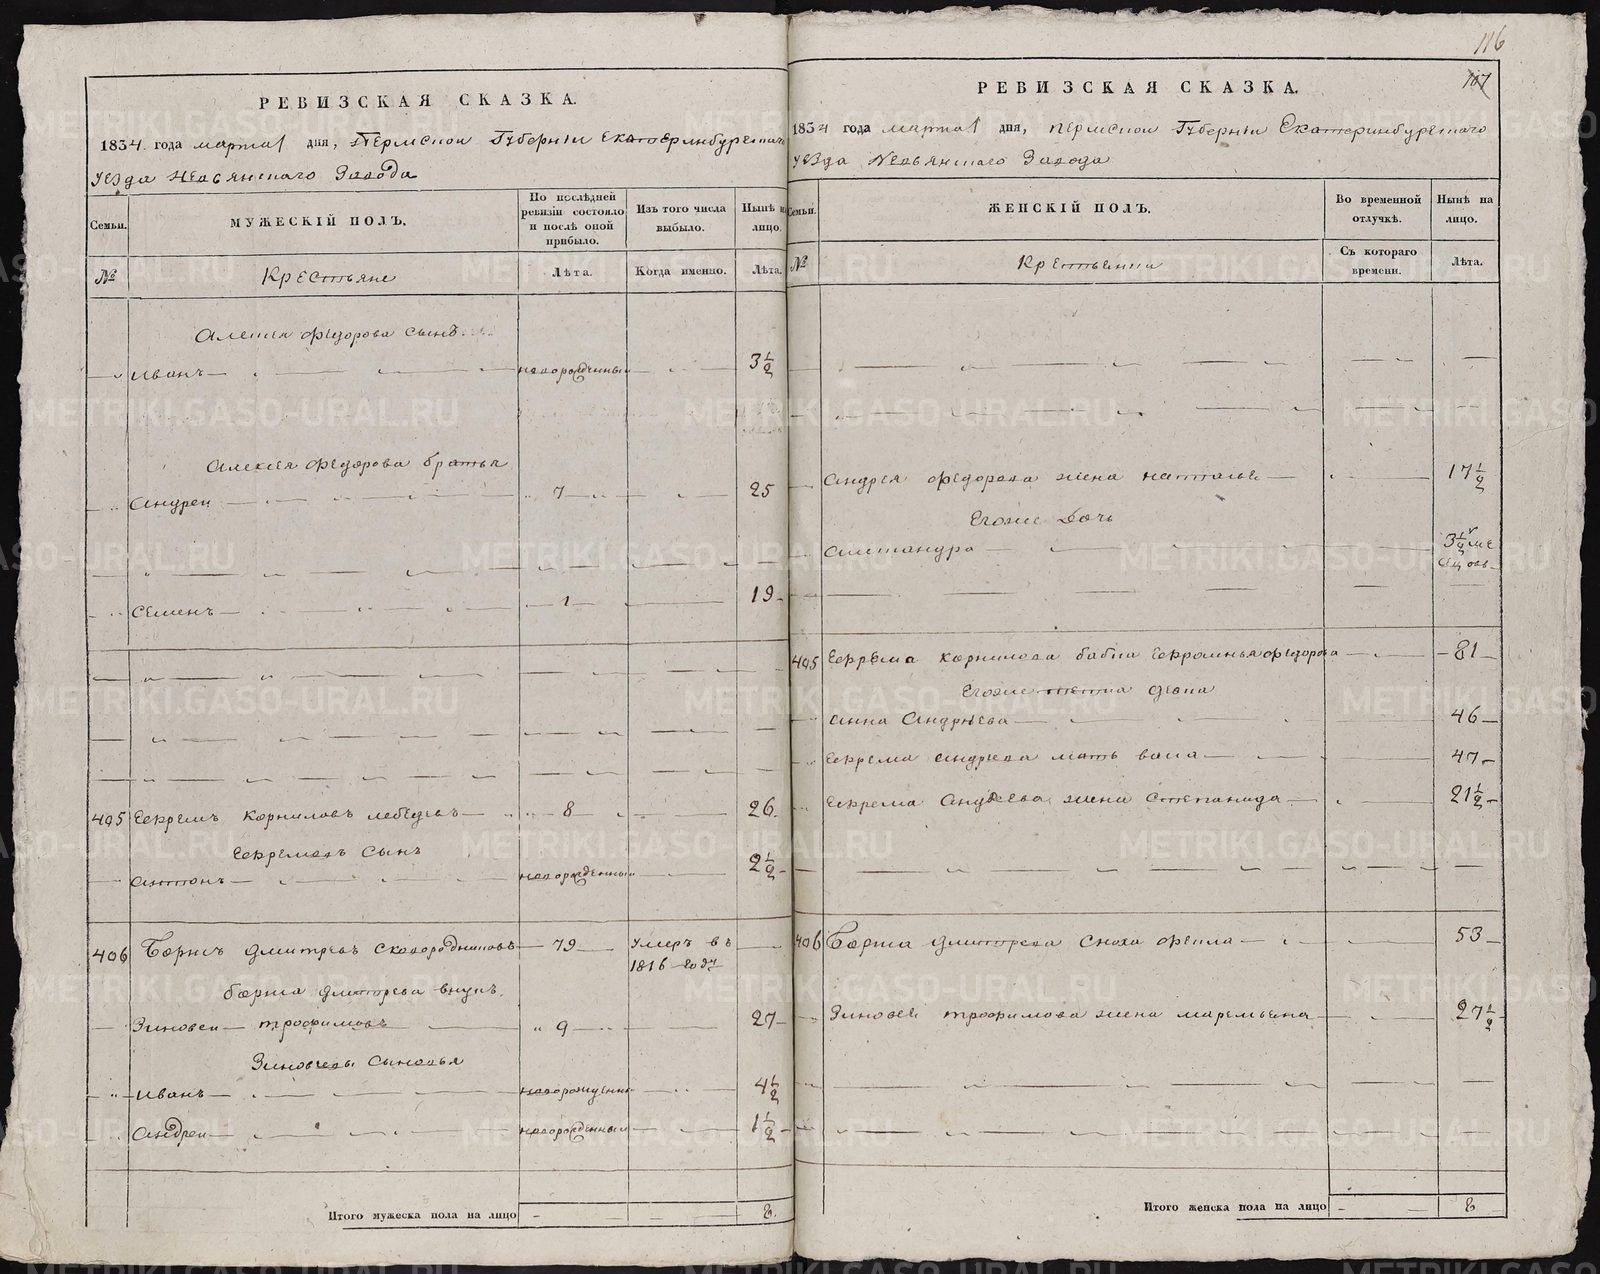 116
107
РЕВИЗСКАЯ СКАЗКА.
1834 года марта 1 дня, Пермской Губернии Екатеринбургскаго
уезда Невьянскаго Завода
Семьи.
МУЖЕСКІЙ ПОЛЪ.
По послѣдней ревизіи состояло и послѣ оной прибыло.
Изъ того числа выбыло.
Нынѣ на лицо.
№
Крестьяне
Лѣта.
Когда именно.
Лѣта.
Алексея Федорова сынъ
Иванъ новорожденный 3 1/2
Алексея Федорова братья
Андреи 7 25
Семенъ 1 19
405 Ефремъ Корниловъ Лебедевъ 8 26
Ефремовъ сынъ
Антонъ новорожденный 2 1/2
406 Борисъ Дмитревъ Сковородниковъ 79 умеръ въ
1816 году
Бориса Дмитрева внукъ
Зиновеи Трофимовъ 9 27
Зиновеевы сыновья
Иванъ новорожденны 4 1/2
Андреи новорожденный 1 1/2
Итого мужеска пола на лицо 8
РЕВИЗСКАЯ СКАЗКА.
1834 года марта 1 дня, Пермской Губернии Екатеринбургскаго
уезда Невьянскаго Завода
Семьи.
ЖЕНСКІЙ ПОЛЪ.
Во временной отлучкѣ.
Нынѣ на лицо.
№
Съ котораго времени.
Лѣта.
Андрея Федорова жена Наталья 17 1/2
Егоже дочь
Александра 3 1/2 ме
сяцовъ
405 Ефрема Корнилова бабка Федорова 81
Егоже тетка девка
Анна Андреева 46
Ефрема Андреева мать 47
Ефрема Андреева жена Степанида 21 1/2
406 Бориса Дмитрева сноха Фекла 53
Зиновея Трофимова жена Маремьяна 27 1/2
Итого женска пола на лицо 8
METRIKI.GASO-URAL.RU